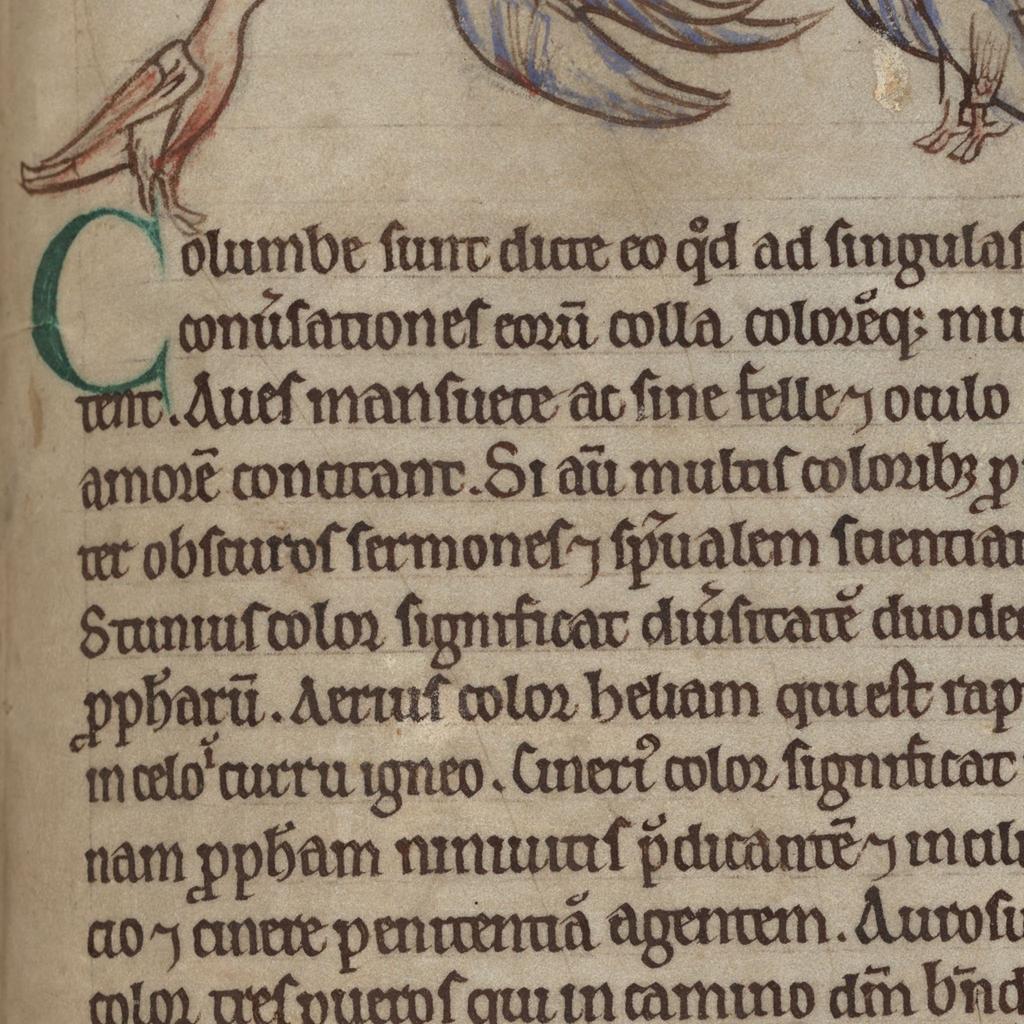 Columbe sunt dicte eo qd̊ ad singulas
conu̓sationes eorū colla coloresq; mu
tent. Aues mansuete ac sine felle ⁊ oculo
amorē concitant. Si aū multis coloribꝫ ꝑ
ter obscuros sermones ⁊ sp̄ualem scientiam
Stuniuus color significat diu̓sitatē duode
ꝓpħarū. Aerius color heliam qui est rap
in celo ı̆ curru igneo. Cinerıꝰ color significat
nam ꝓpħam niniuitis p̆dicantē ⁊ in cili
cio ⁊ cinere penitentiā agentem. Aurosus
color tres pueros qui in camino dm̄ bn̄d